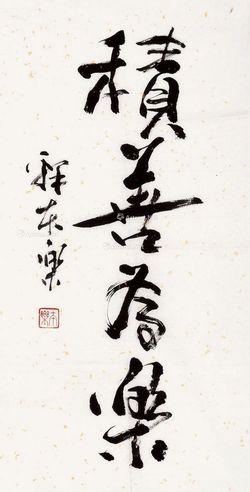 積善為樂
釋本樂